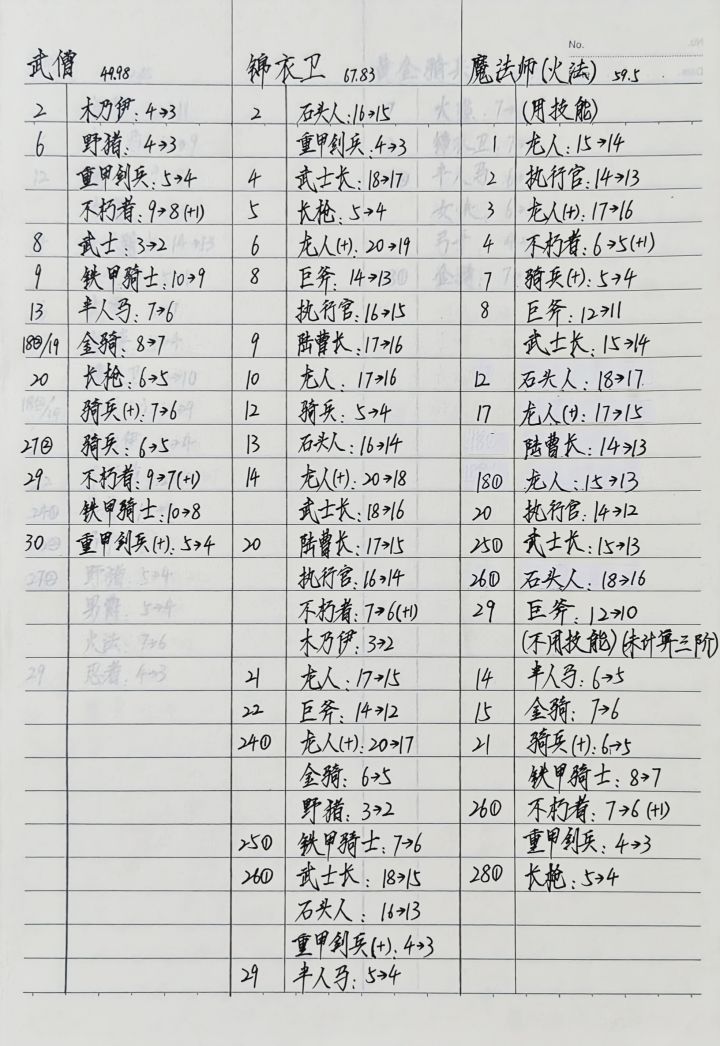 No.
武僧 49.98
2 木乃伊：4→3
6 野猪：4→3
12 重甲剑兵：5→4
不朽者：9→8(+1)
8 武士：3→2
9 铁甲骑士：10→9
13 半人马：7→6
18②/19 金骑：8→7
20 长枪：6→5
骑兵(+)：7→6
27② 骑兵：6→5
29 不朽者：9→7(+1)
铁甲骑士：10→8
30 重甲剑兵(+)：5→4
锦衣卫 67.83
2 石头人：16→15
重甲剑兵：4→3
4 武士长：18→17
5 长枪：5→4
6 龙人(+)：20→19
8 巨斧：14→13
执行官：16→15
9 陆曹长：17→16
10 龙人：17→16
12 骑兵：5→4
13 石头人：16→14
14 龙人(+)：20→18
武士长：18→16
20 陆曹长：17→15
执行官：16→14
不朽者：7→6(+1)
木乃伊：3→2
21 龙人：17→15
22 巨斧：14→12
24① 龙人(+)：20→17
金骑：6→5
野猪：3→2
25① 铁甲骑士：7→6
26① 武士长：18→15
石头人：16→13
重甲剑兵(+)：4→3
29 半人马：5→4
魔法师(火法) 59.5
(用技能)
1 龙人：15→14
2 执行官：14→13
3 龙人(+)：17→16
4 不朽者：6→5(+1)
7 骑兵(+)：5→4
8 巨斧：12→11
武士长：15→14
12 石头人：18→17
17 龙人(+)：17→15
陆曹长：14→13
18① 龙人：15→13
20 执行官：14→12
25① 武士长：15→13
26① 石头人：18→16
29 巨斧：12→10
(不用技能)(未计算三阶)
14 半人马：6→5
15 金骑：7→6
21 骑兵(+)：6→5
铁甲骑士：8→7
26① 不朽者：7→6(+1)
重甲剑兵：4→3
28① 长枪：5→4